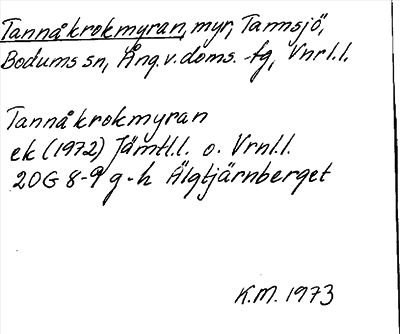 Tannåkrokmyran, myr, Tannsjö,
Bodums sn, Ång.v.doms.-fg, Vnrl.l.
Tannåkrokmyran
ek (1972) Jämtl.l. o. Vrnl.l.
20G 8-9 g-h Älgtjärnberget
K.M. 1973